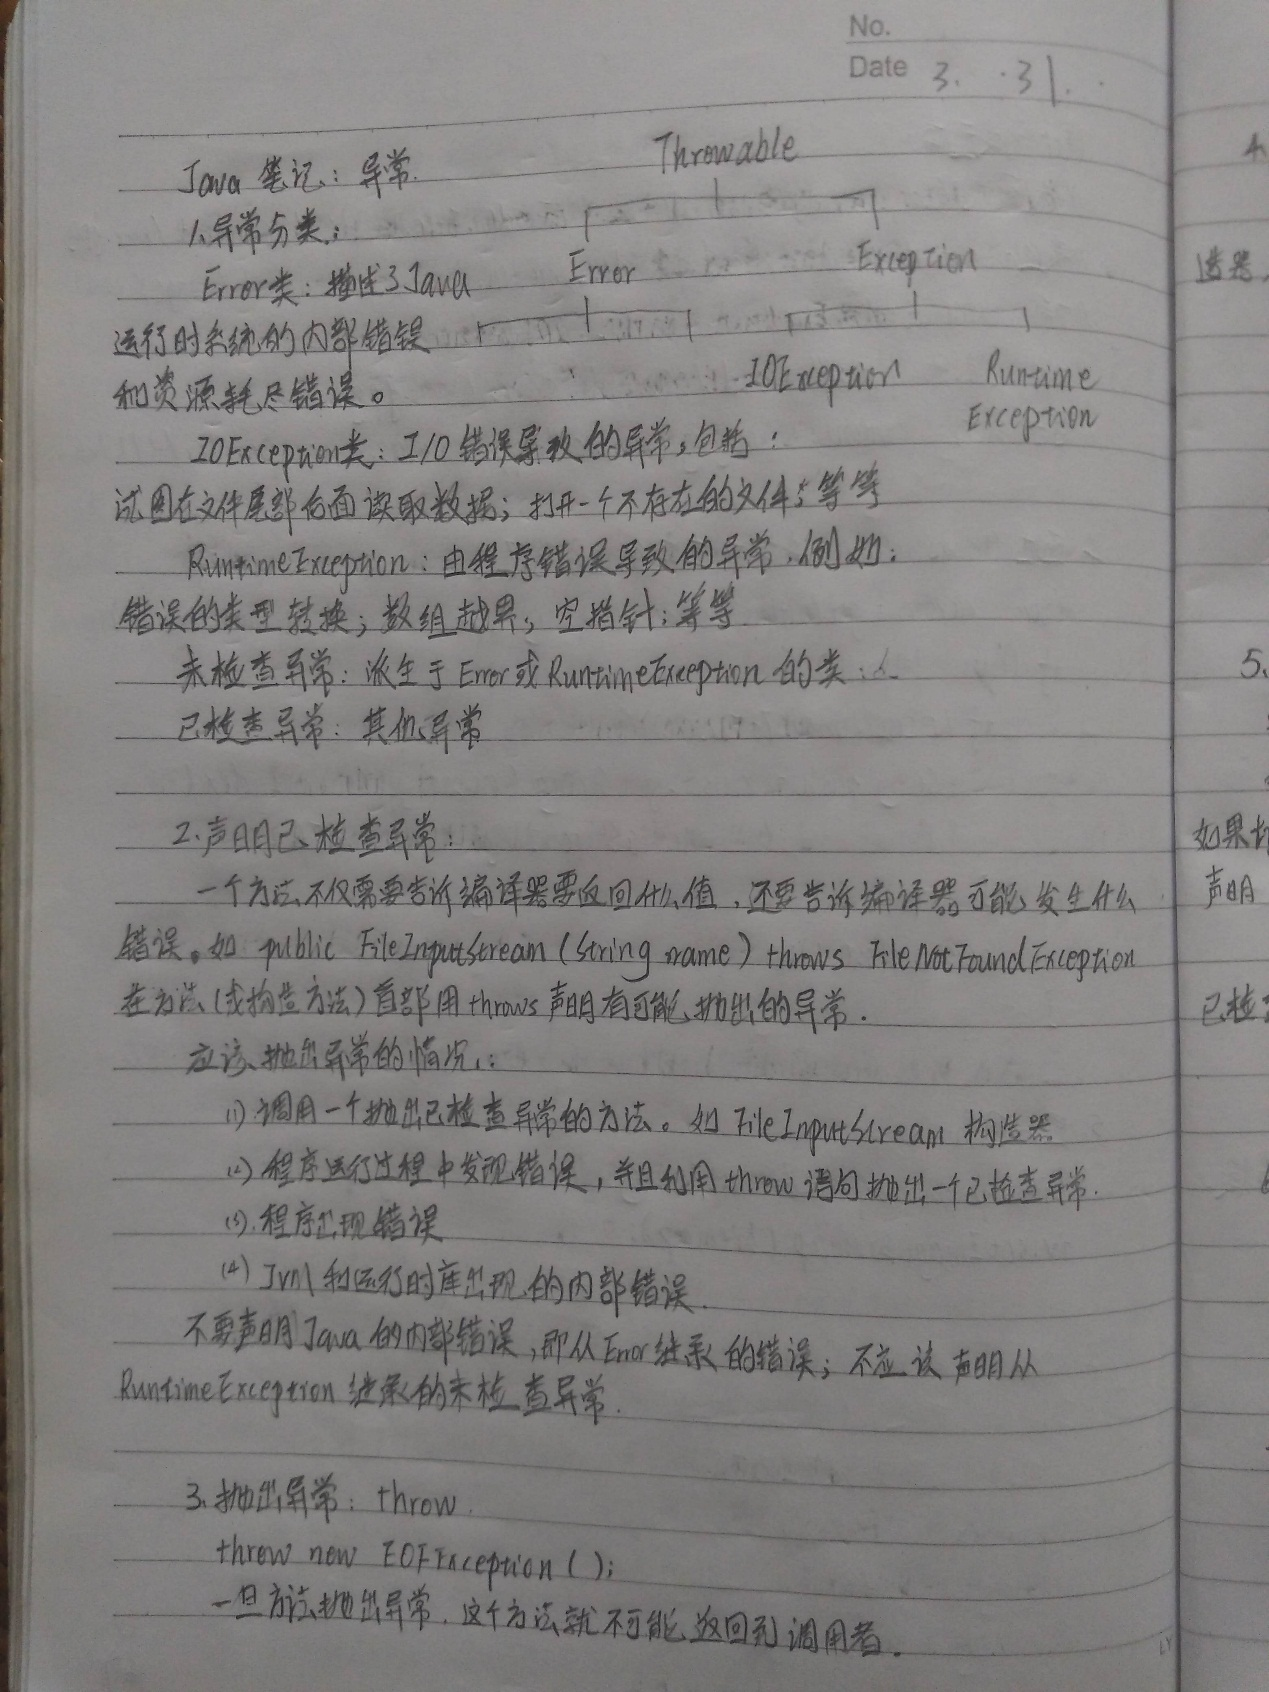 No.
Date 3. ·31.
Throwable
Java 笔记: 异常.
1.异常分类:
Error Exception
Error类: 描述了Java
运行时系统的内部错误
IOException Runtime
和资源耗尽错误。
Exception
IOException类: I/O 错误导致的异常,包括:
试图在文件尾部后面读取数据; 打开一个不存在的文件;等等
RuntimeException: 由程序错误导致的异常.例如:
错误的类型转换; 数组越界; 空指针;等等
未检查异常: 派生于 Error或 RuntimeException 的类;
已检查异常: 其他异常
2.声明已检查异常:
一个方法不仅需要告诉编译器要返回什么值,还要告诉编译器可能发生什么
错误。如 public FileInputStream (String name) throws FileNotFoundException
在方法(或构造方法)首部用throws声明有可能抛出的异常.
应该抛出异常的情况:
(1)调用一个抛出已检查异常的方法。如 FileInputStream 构造器
(2)程序运行过程中发现错误,并且利用throw语句抛出一个已检查异常.
(3).程序出现错误
(4) Jvm 和运行时库出现的内部错误.
不要声明Java 的内部错误,即从Error继承的错误; 不应该声明从
RuntimeException 继承的未检查异常.
3.抛出异常: throw.
throw new EOFException();
一旦方法抛出异常.这个方法就不可能返回到调用者.
4.
造器,
5.
如果
声明
已检